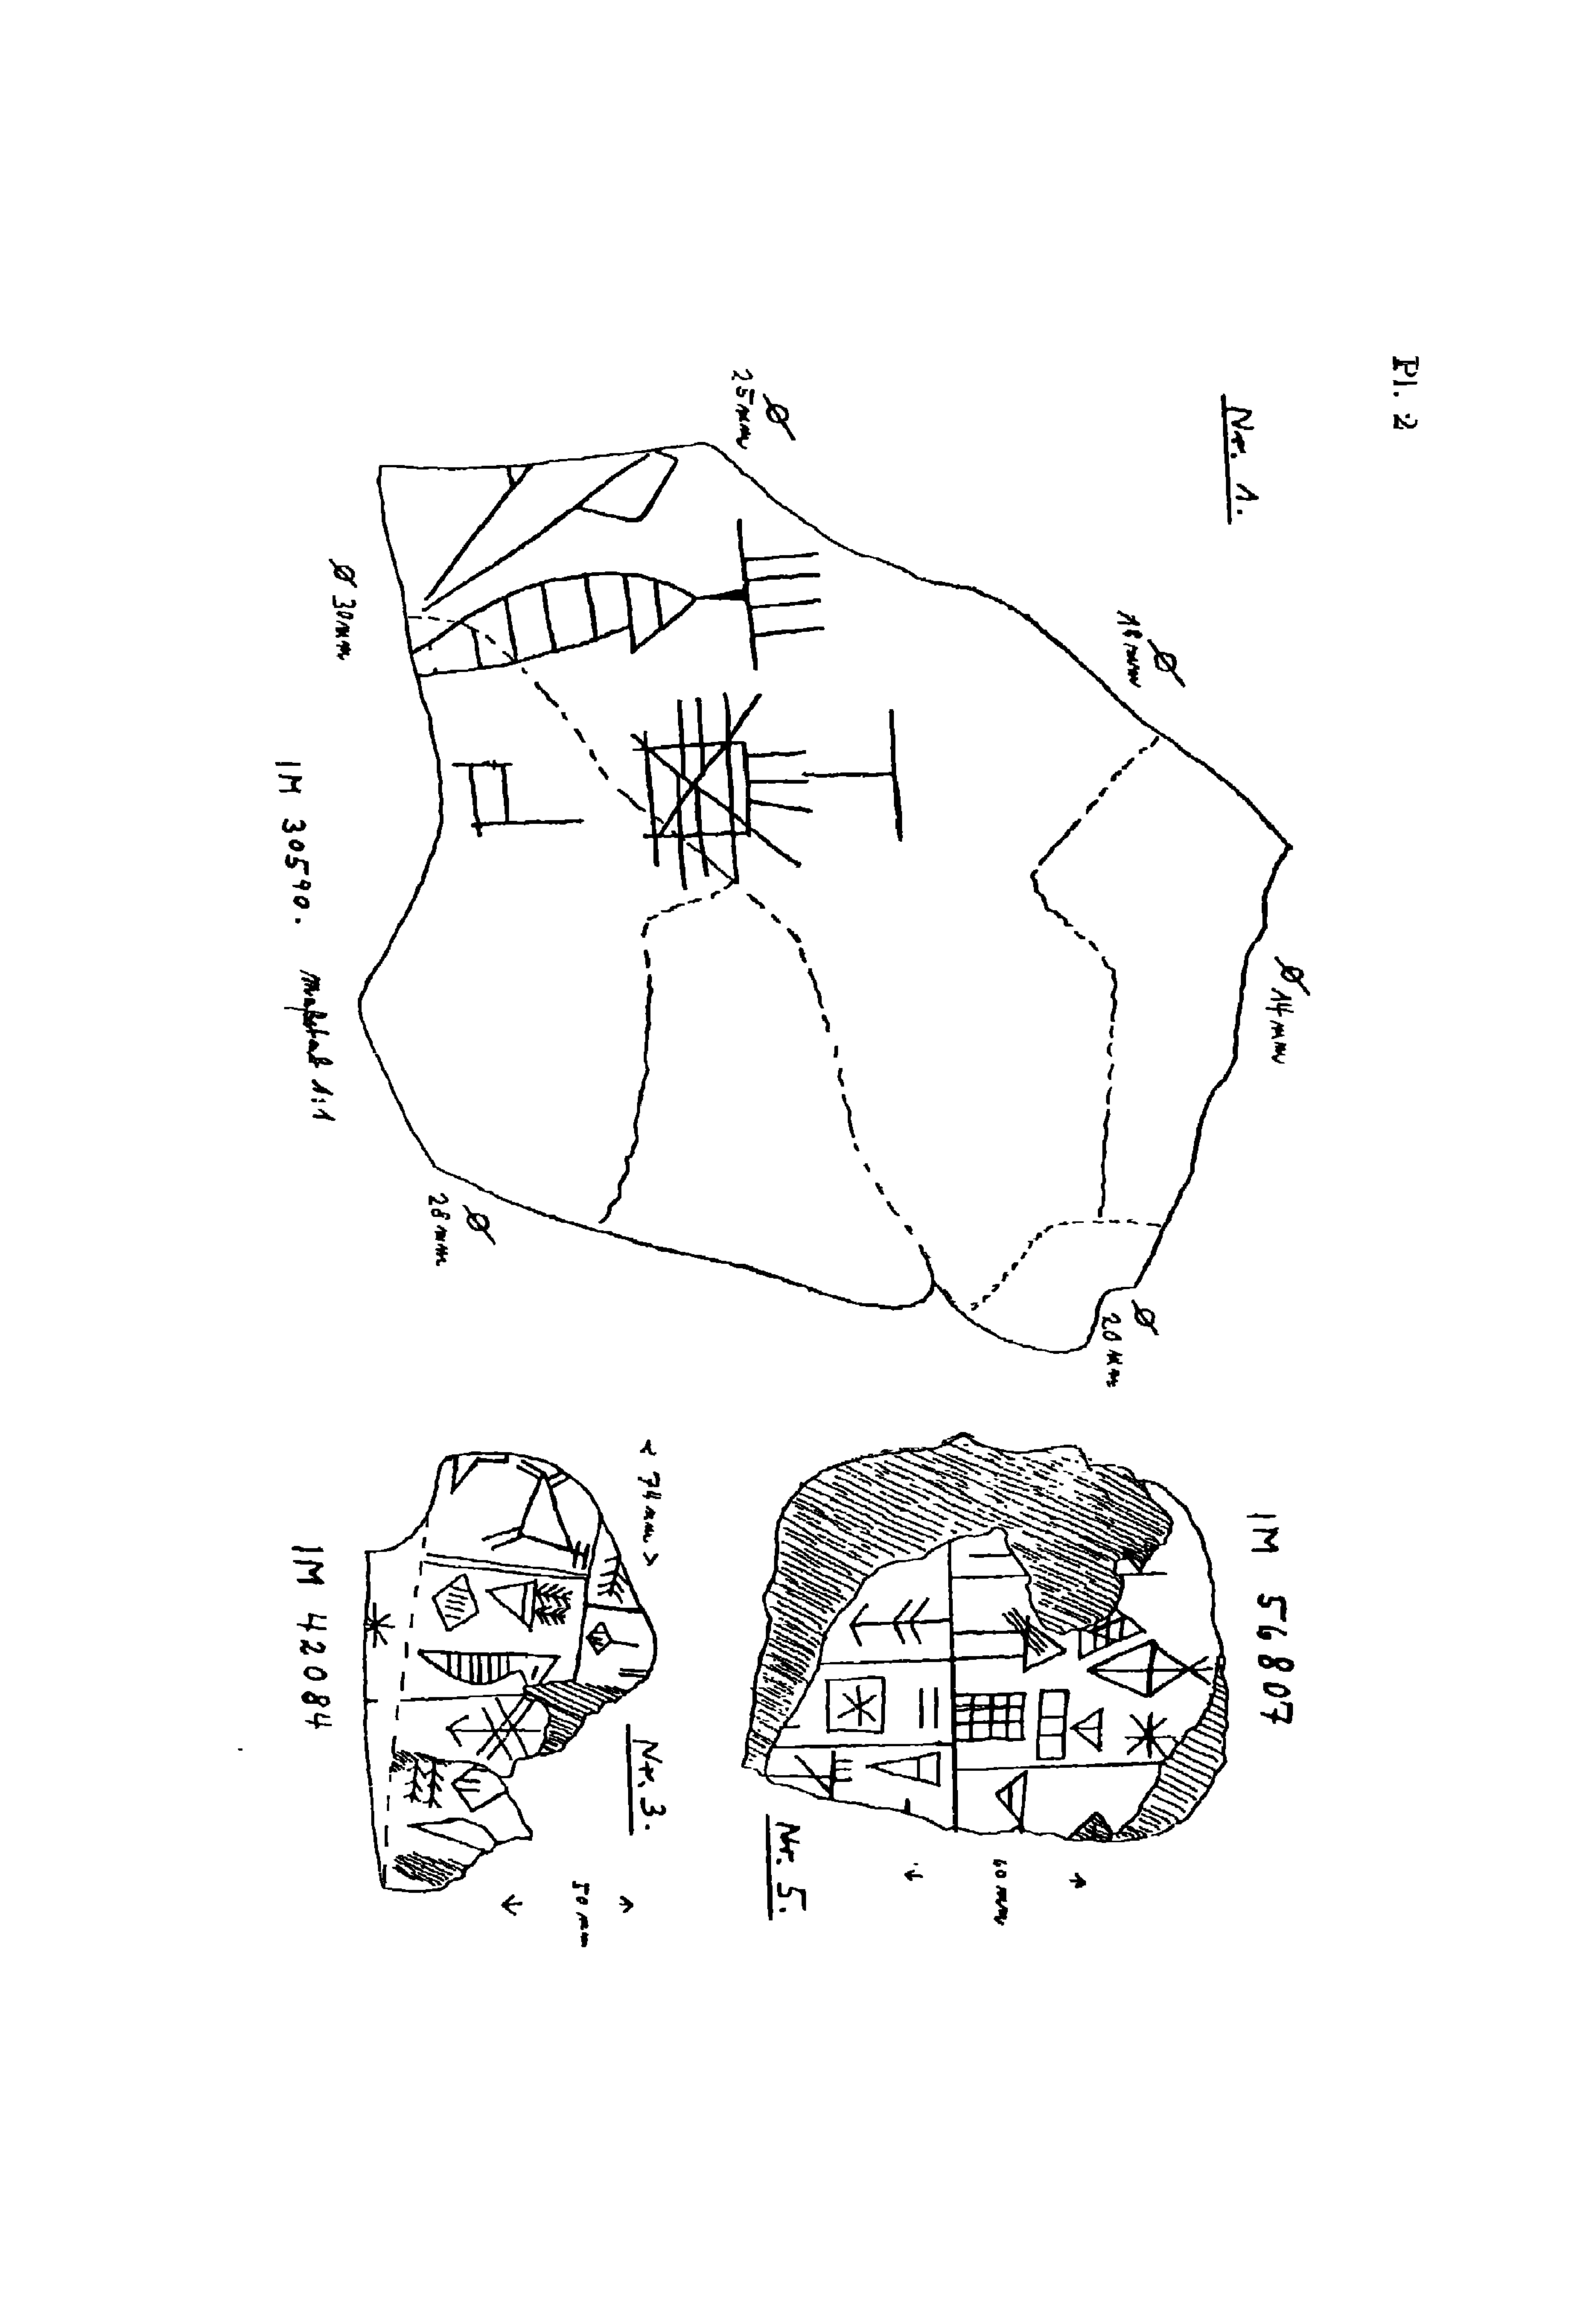 Pl. 2
Nr. 1.
Ø
25 mm
Ø
18 mm
Ø 14 mm
Ø
20 mm
Ø 30 mm
Ø
28 mm
IM 30590. Maßstab 1:1
IM 56807
60 mm
Nr. 5.
< 74 mm >
Nr. 3.
50 mm
IM 42084